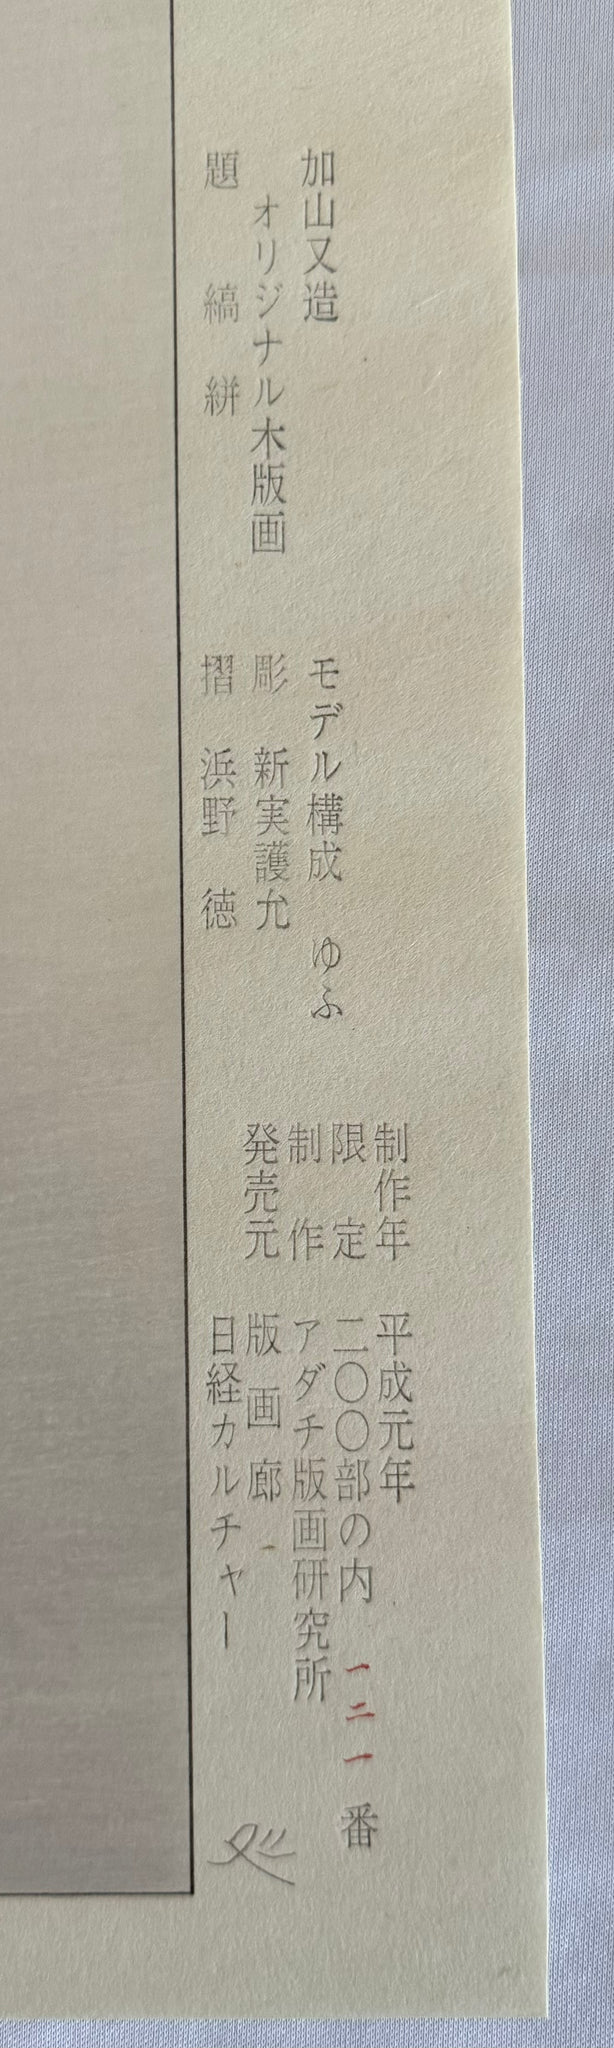 加山又造
オリジナル木版画
題 縞絣
モデル構成 ゆふ
彫 新実護允
摺 浜野 徳
制作年 平成元年
限定 二〇〇部の内 一二一番
制作 アダチ版画研究所
発売元 版画廊
日経カルチャー